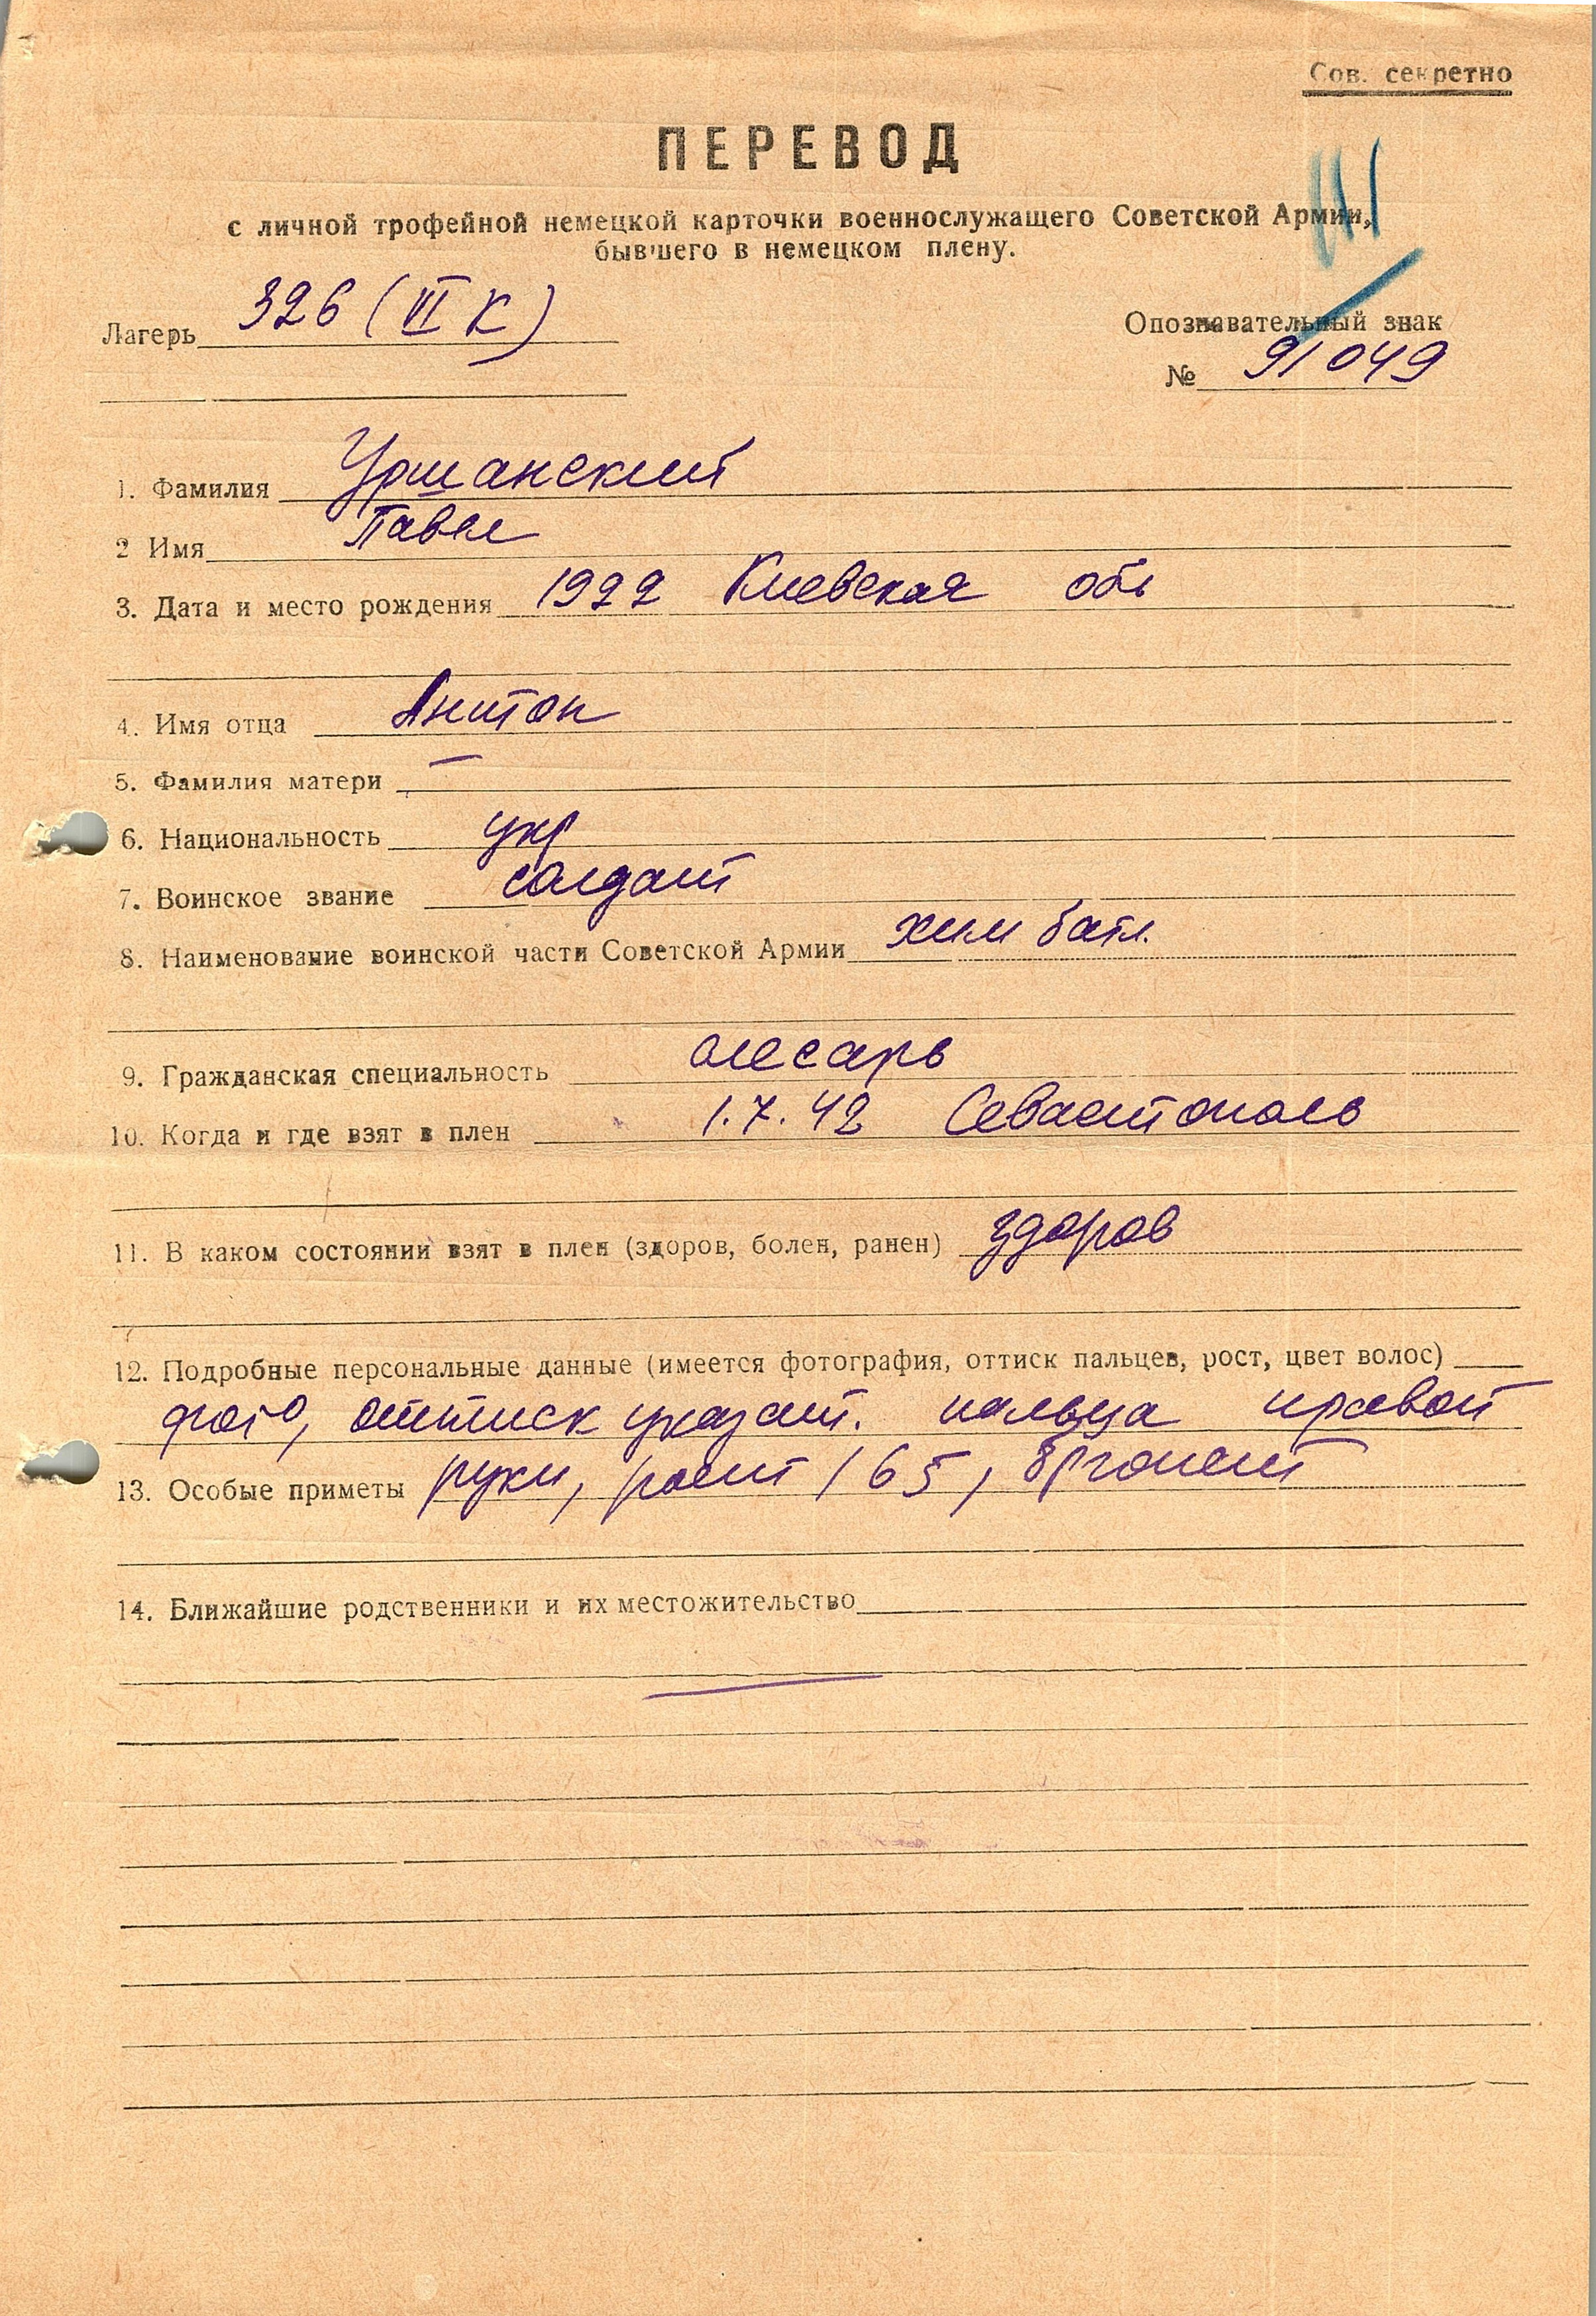 Сов. секретно
ПЕРЕВОД
с личной трофейной немецкой карточки военнослужащего Советской Армии,
бывшего в немецком плену.
Лагерь 326 (VI К)
Опознавательный знак
№ 91049
1. Фамилия Уршанский
2 Имя Павел
3. Дата и место рождения 1922 Киевская обл
4. Имя отца Антон
5. Фамилия матери —
6. Национальность укр
7. Воинское звание солдат
8. Наименование воинской части Советской Армии хим батл.
9. Гражданская специальность слесарь
10. Когда и где взят в плен 1.7.42 Севастополь
11. В каком состоянии взят в плен (здоров, болен, ранен) здоров
12. Подробные персональные данные (имеется фотография, оттиск пальцев, рост, цвет волос)
фото, оттиск указат. пальца правой
13. Особые приметы руки, рост 165,
14. Ближайшие родственники и их местожительство